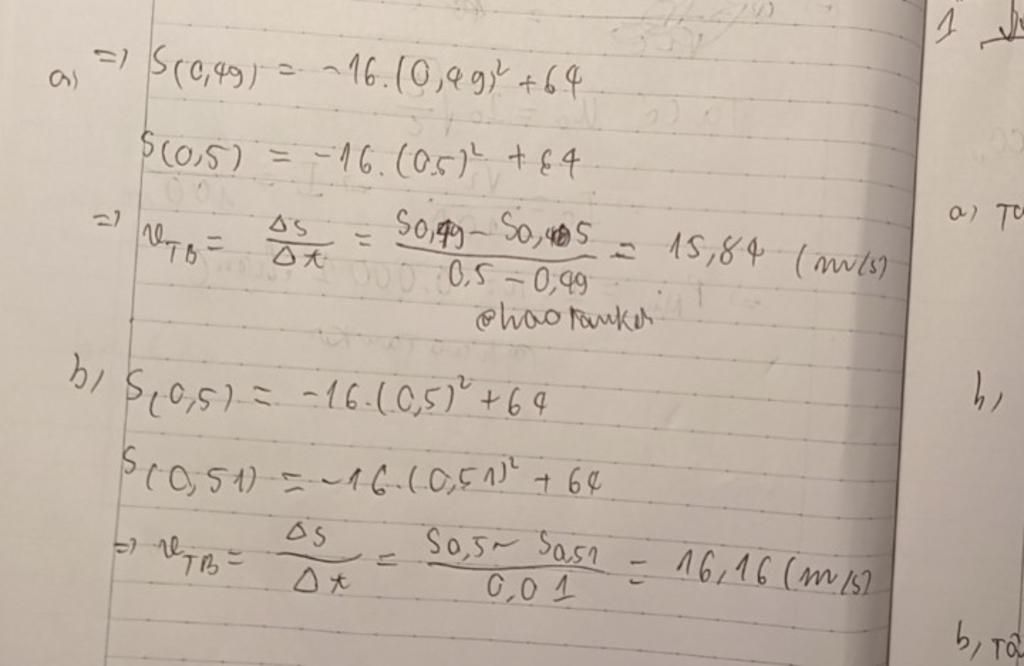 a) => S(0,49) = -16.(0,49)² + 64
S(0,5) = -16.(0,5)² + 64
=> v_TB = Δs/Δt = (S0,49 - S0,5)/(0,5 - 0,49) = 15,84 (m/s)
b, S(0,5) = -16.(0,5)² + 64
S(0,51) = -16.(0,51)² + 64
=> v_TB = Δs/Δt = (S0,5 - S0,51)/(0,01) = 16,16 (m/s)
1
a)
b,
b,